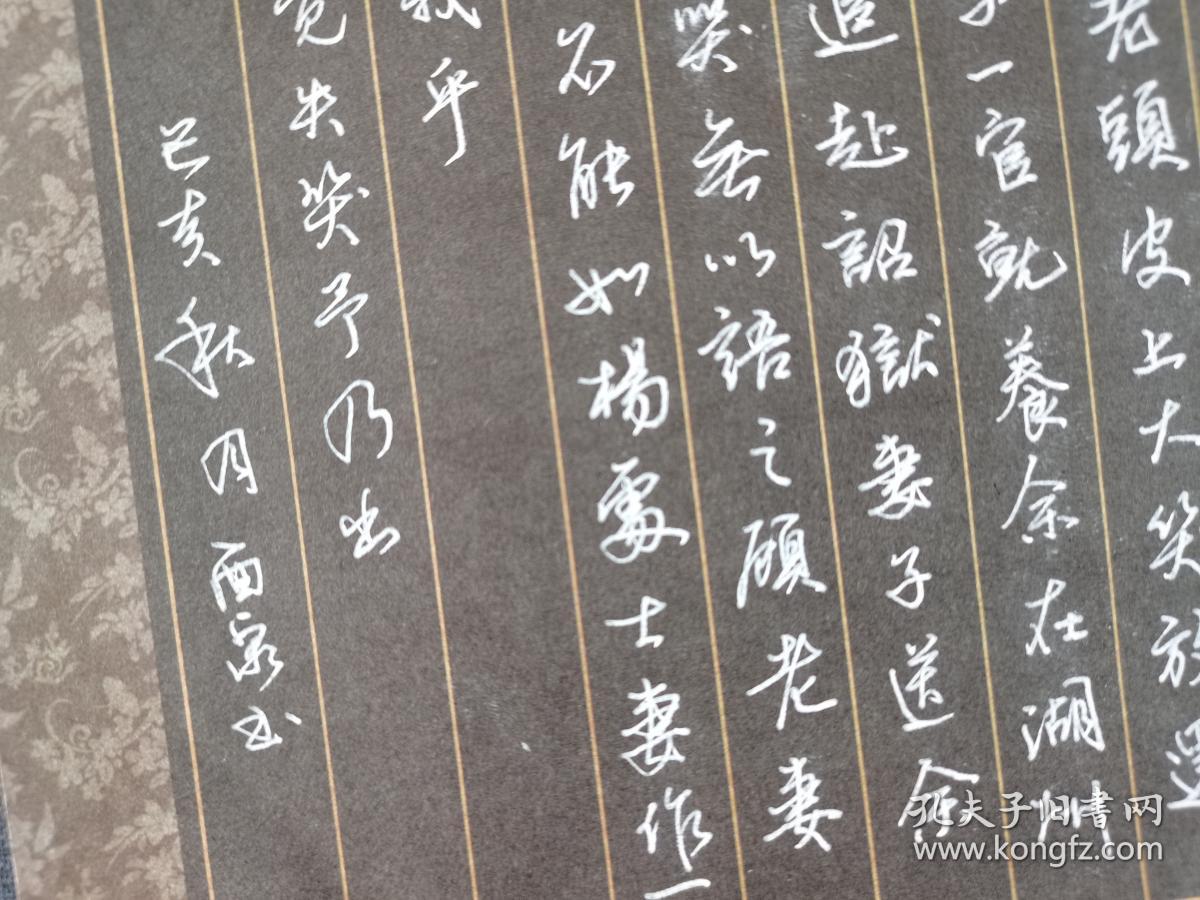 老頭皮上大笑放還
一官就養余在湖州
追赴詔獄妻子送余
哭無以語之顧老妻
不能如楊處士妻作一
我乎
覺失笑予乃出
己亥秋月西泉书
孔夫子旧书网
www.kongfz.com